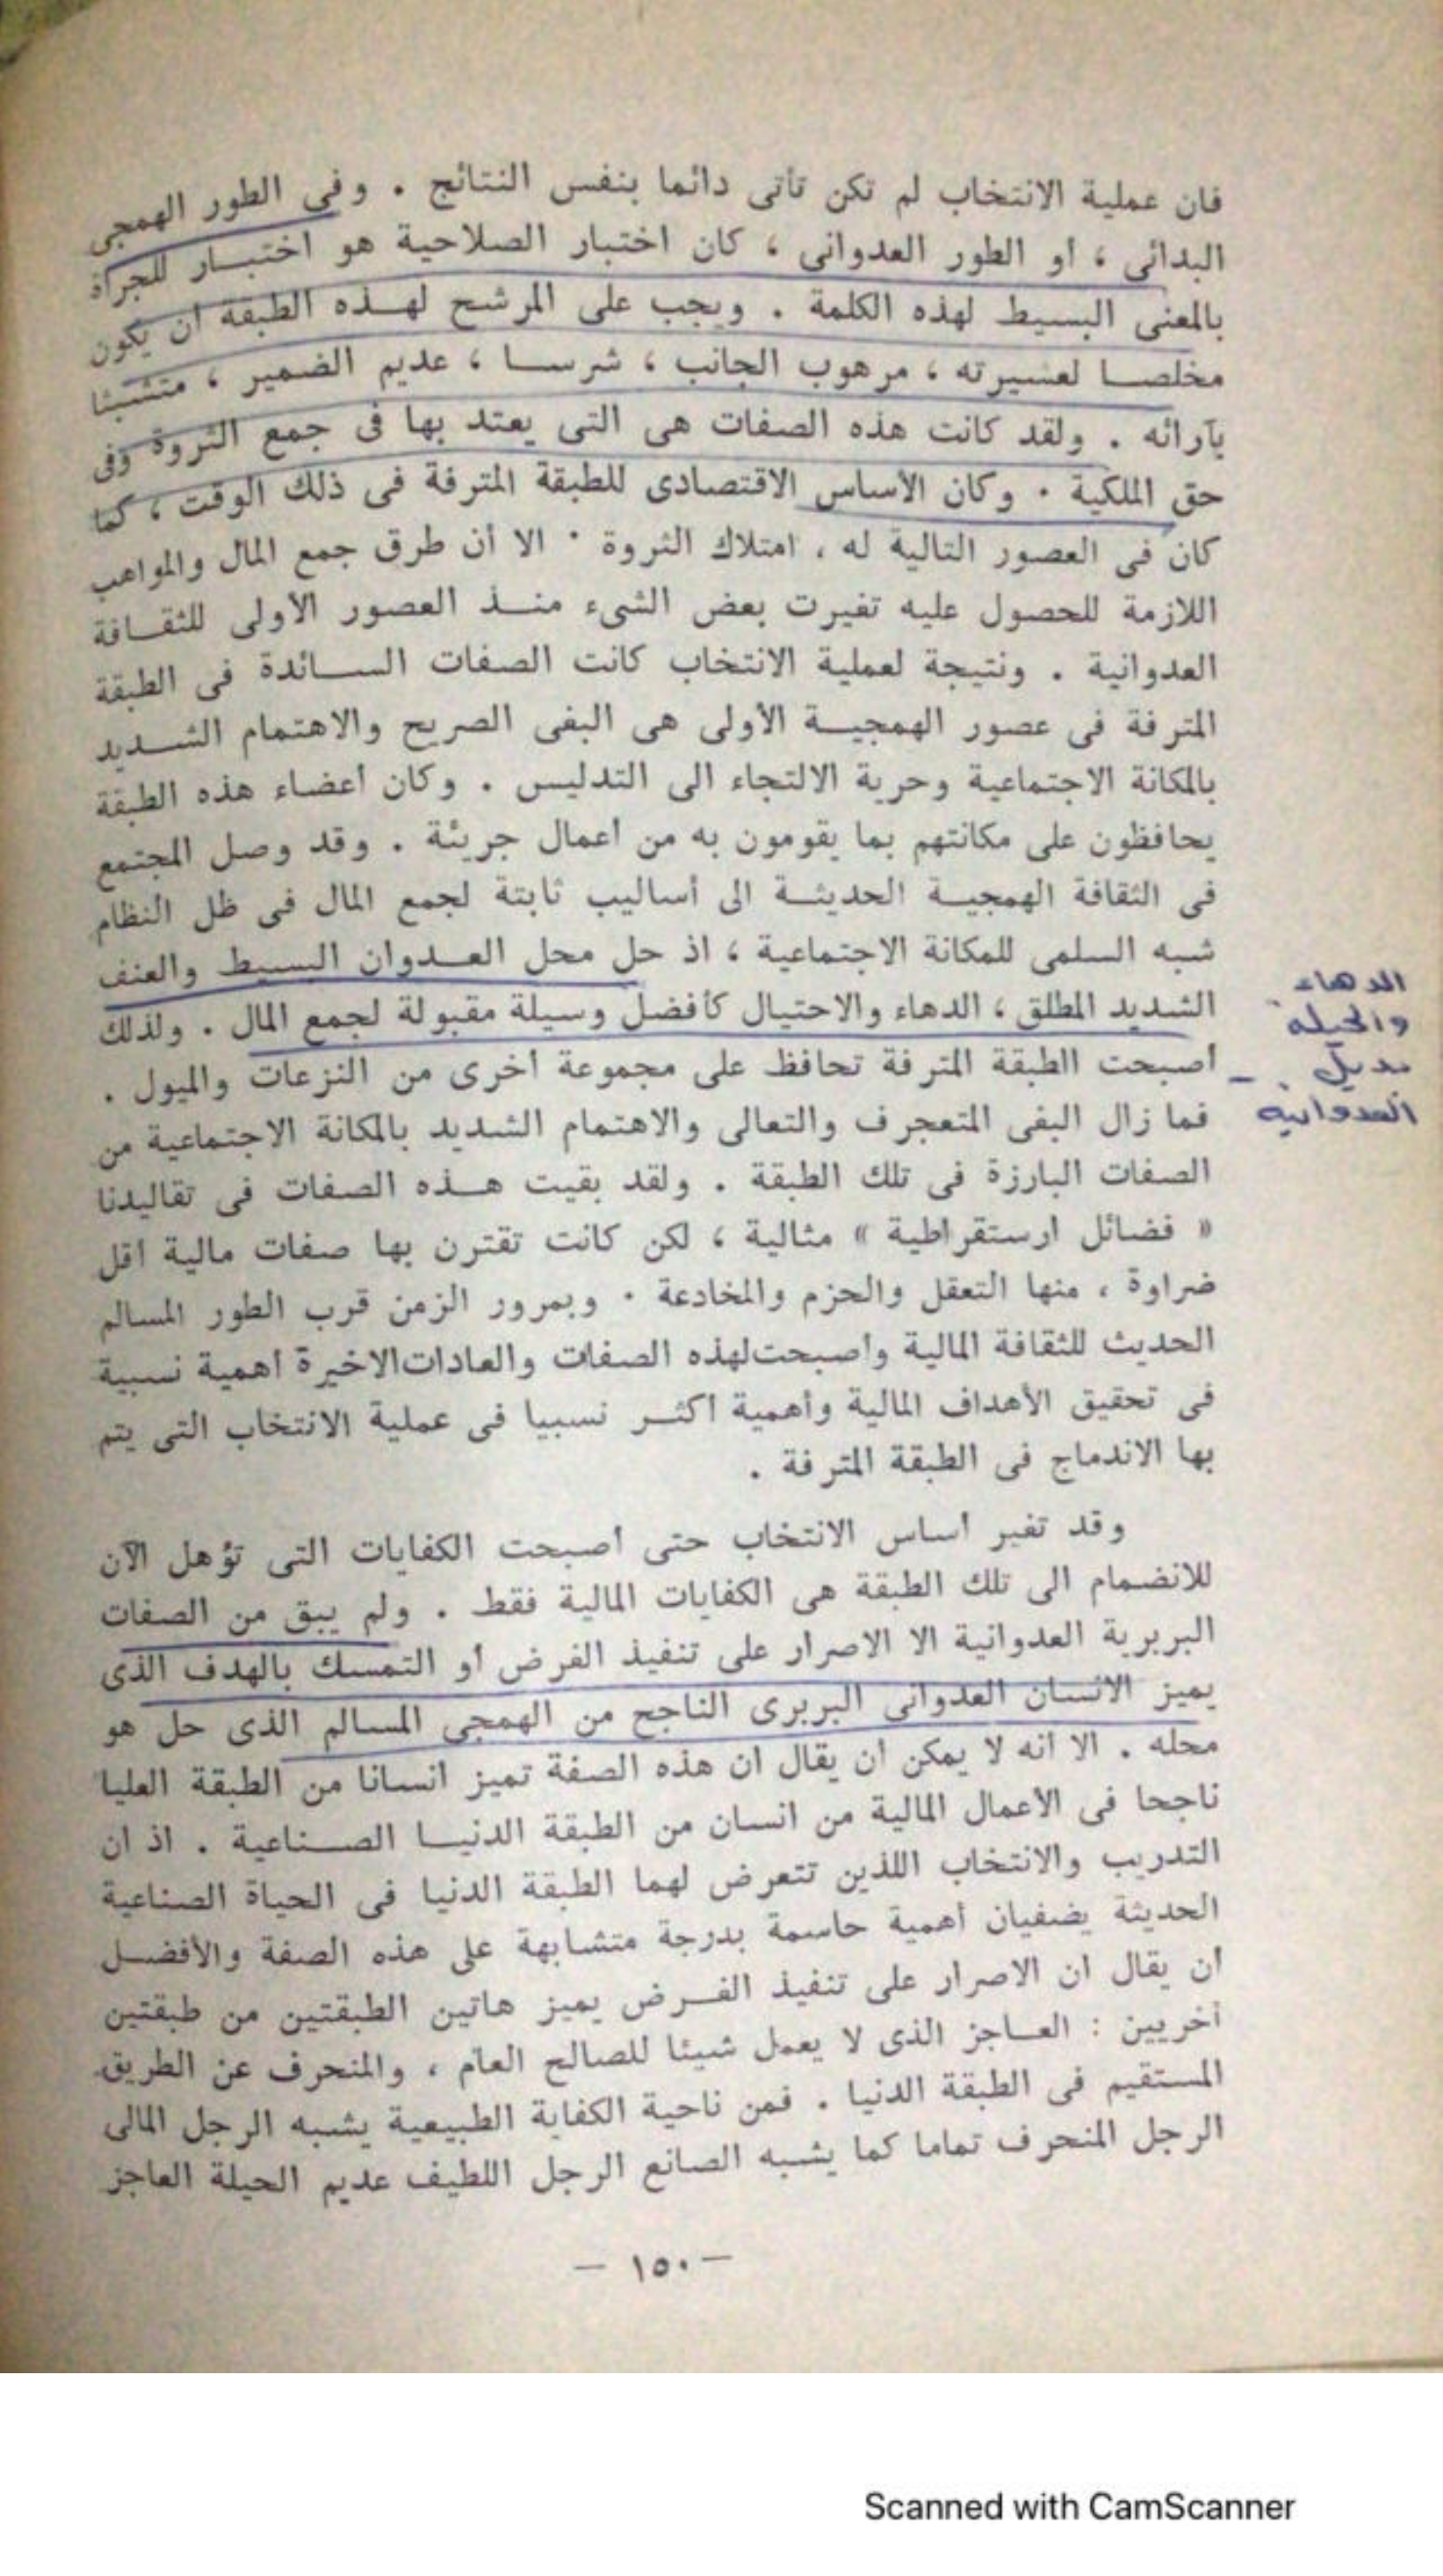 فان عملية الانتخاب لم تكن تأتى دائما بنفس النتائج . وفى الطور الهمجى
البدائى ، أو الطور العدوانى ، كان اختبار الصلاحية هو اختبـــار للجرأة
بالمعنى البسيط لهذه الكلمة . ويجب على المرشح لهــذه الطبقة ان يكون
مخلصــا لعشيرته ، مرهوب الجانب ، شرســا ، عديم الضمير ، متشبثا
بآرائه . ولقد كانت هذه الصفات هى التى يعتد بها فى جمع الثروة وفى
حق الملكية . وكان الأساس الاقتصادى للطبقة المترفة فى ذلك الوقت ، كما
كان فى العصور التالية له ، امتلاك الثروة . الا أن طرق جمع المال والمواهب
اللازمة للحصول عليه تغيرت بعض الشىء منــذ العصور الأولى للثقــافة
العدوانية . ونتيجة لعملية الانتخاب كانت الصفات الســائدة فى الطبقة
المترفة فى عصور الهمجيــة الأولى هى البغى الصريح والاهتمام الشــديد
بالمكانة الاجتماعية وحرية الالتجاء الى التدليس . وكان أعضاء هذه الطبقة
يحافظون على مكانتهم بما يقومون به من أعمال جريئة . وقد وصل المجتمع
فى الثقافة الهمجيــة الحديثــة الى أساليب ثابتة لجمع المال فى ظل النظام
شبه السلمى للمكانة الاجتماعية ، اذ حل محل العــدوان البسيط والعنف
الشديد المطلق ، الدهاء والاحتيال كأفضل وسيلة مقبولة لجمع المال . ولذلك
أصبحت الطبقة المترفة تحافظ على مجموعة أخرى من النزعات والميول .
فما زال البغى المتعجرف والتعالى والاهتمام الشديد بالمكانة الاجتماعية من
الصفات البارزة فى تلك الطبقة . ولقد بقيت هــذه الصفات فى تقاليدنا
« فضائل ارستقراطية » مثالية ، لكن كانت تقترن بها صفات مالية أقل
ضراوة ، منها التعقل والحزم والمخادعة . وبمرور الزمن قرب الطور المسالم
الحديث للثقافة المالية وأصبحت لهذه الصفات والعادات الاخيرة أهمية نسبية
فى تحقيق الأهداف المالية وأهمية أكثــر نسبيا فى عملية الانتخاب التى يتم
بها الاندماج فى الطبقة المترفة .
وقد تغير أساس الانتخاب حتى أصبحت الكفايات التى تؤهل الآن
للانضمام الى تلك الطبقة هى الكفايات المالية فقط . ولم يبق من الصفات
البربرية العدوانية الا الاصرار على تنفيذ الغرض أو التمسك بالهدف الذى
يميز الانسان العدوانى البربرى الناجح من الهمجى المسالم الذى حل هو
محله . الا انه لا يمكن ان يقال ان هذه الصفة تميز انسانا من الطبقة العليا
ناجحا فى الاعمال المالية من انسان من الطبقة الدنيــا الصــناعية . اذ ان
التدريب والانتخاب اللذين تتعرض لهما الطبقة الدنيا فى الحياة الصناعية
الحديثة يضفيان أهمية حاسمة بدرجة متشابهة على هذه الصفة والأفضــل
أن يقال ان الاصرار على تنفيذ الغــرض يميز هاتين الطبقتين من طبقتين
أخريين : العــاجز الذى لا يعمل شيئا للصالح العام ، والمنحرف عن الطريق
المستقيم فى الطبقة الدنيا . فمن ناحية الكفاية الطبيعية يشبه الرجل المالى
الرجل المنحرف تماما كما يشبه الصانع الرجل اللطيف عديم الحيلة العاجز
الدهاء
والحيلة
بديل
العدوانية
— ١٥٠ —
Scanned with CamScanner